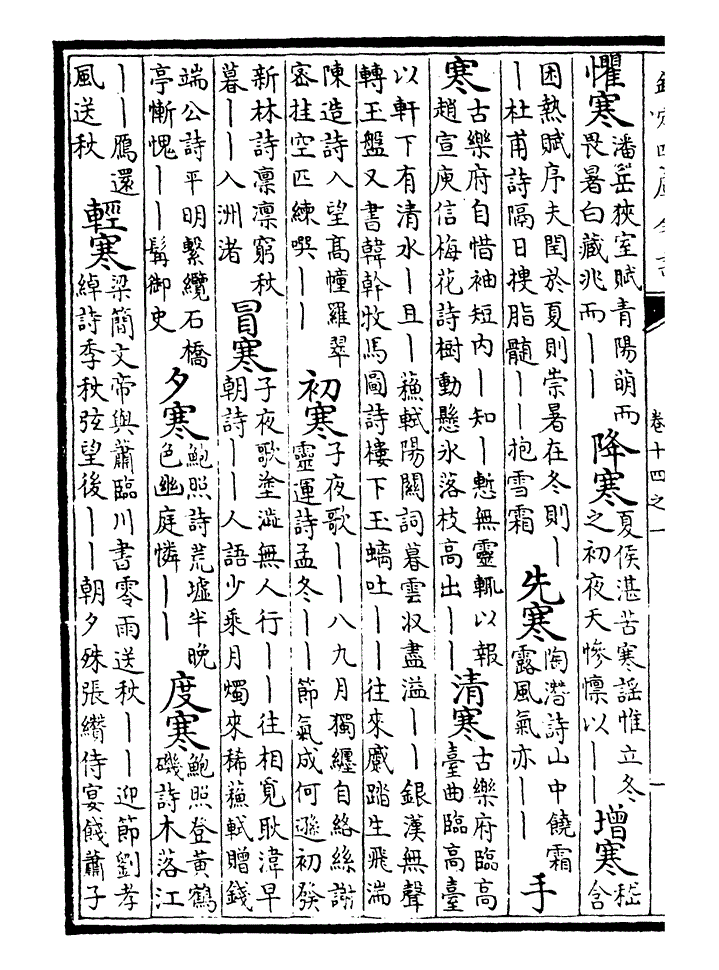 懼寒潘岳狹室賦青陽萌而畏暑白藏兆而丨丨降寒夏侯湛苦寒謡惟立冬之初夜天慘懔以丨丨增寒嵇含
困熱賦序夫閏於夏則崇暑在冬則丨丨杜甫詩隔日搜脂髓丨丨抱雪霜先寒陶潜詩山中饒霜露風氣亦丨丨手
寒古樂府自惜袖短内丨知丨慙無靈輒以報趙宣庾信梅花詩樹動懸氷落枝高出丨丨清寒古樂府臨高臺曲臨高臺
以軒下有清水丨且丨蘇軾陽關詞暮雲收盡溢丨丨銀漢無聲轉玉盤又書韓幹牧馬圖詩樓下玉螭吐丨丨往來蹙踏生飛湍
陳造詩入望髙幢羅翠宻挂空匹練噀丨丨初寒子夜歌丨丨八九月獨纒自絡絲謝靈運詩孟冬丨丨節氣成何遜初發
新林詩凛凛窮秋暮丨丨入洲渚冒寒子夜歌塗澁無人行丨丨往相覓耿湋早朝詩丨丨人語少乘月燭來稀蘇軾贈錢
端公詩平明繫纜石橋亭慚愧丨丨髯御史夕寒鮑照詩荒墟半晚色幽庭憐丨丨度寒鮑照登黄鶴磯詩木落江
丨丨鴈還風送秋輕寒梁簡文帝與蕭臨川書零雨送秋丨丨迎節劉孝綽詩季秋弦望後丨丨朝夕殊張纉侍宴餞蕭子
卷十四之一